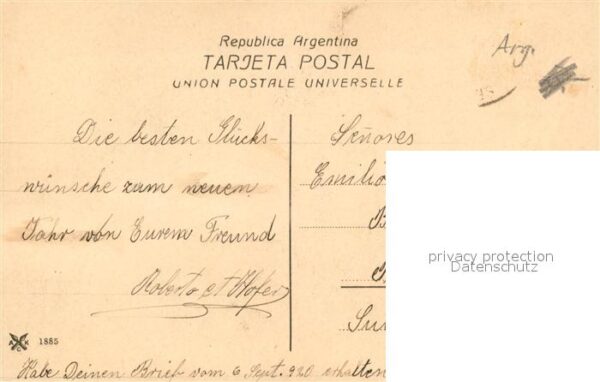 Republica Argentina
TARJETA POSTAL
UNION POSTALE UNIVERSELLE
Arg.
Die besten Glücks-
wünsche zum neuen
Jahr von Eurem Freund
Roberto et Hofer
Señores
Emilio
privacy protection
Datenschutz
1885
Habe Deinen Brief vom 6 Sept. 920 erhalten